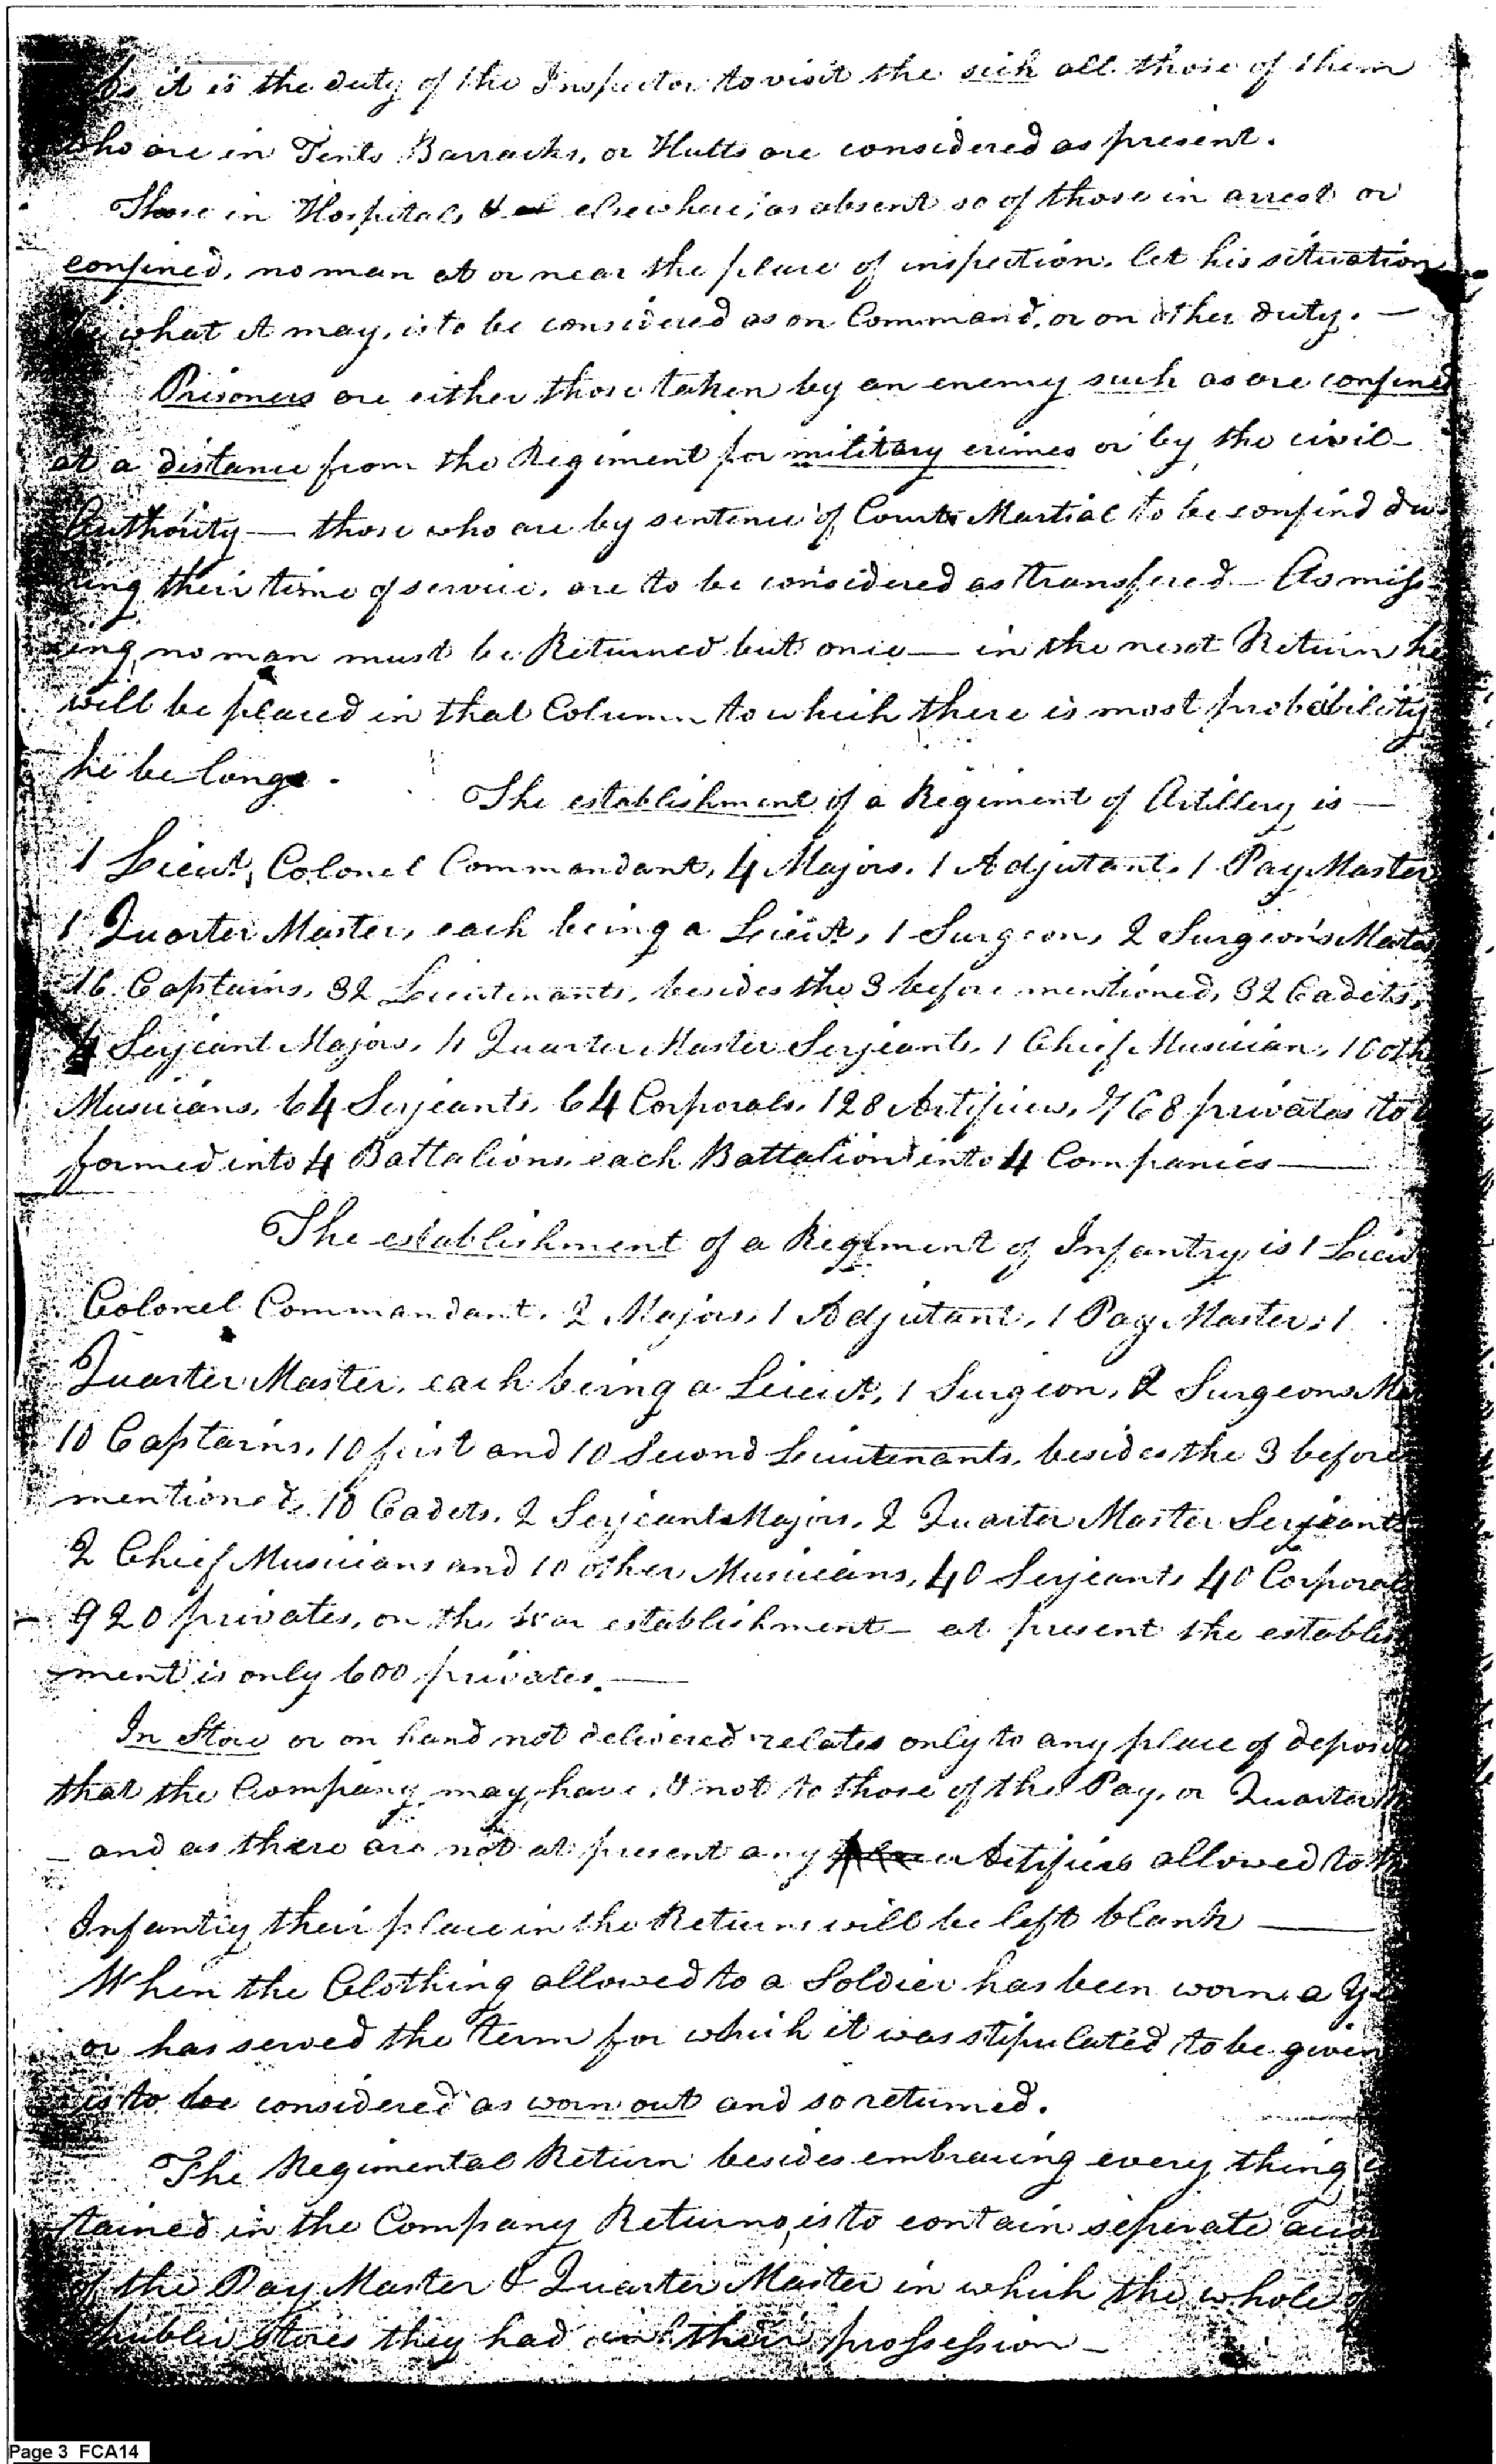 As it is the duty of the Inspector to visit the sick all those of them
who are in Tents Barracks, or Hutts are considered as present.
Those in Hospitals & elsewhere, as absent so of those in arrest or
confined, no man at or near the place of inspection, let his situation
be what it may, is to be considered as on Command, or on other duty. —
Prisoners are either those taken by an enemy such as are confined
at a distance from the Regiment for military crimes or by the civil
Authority — those who are by sentence of Courts Martial to be confind du-
ring their time of service, are to be considered as transfered — As miss-
ing, no man must be Returned but once — in the next Return he
will be placed in that Column to which there is most probability
he belongs.
The establishment of a Regiment of Artillery is —
1 Lieut. Colonel Commandant, 4 Majors, 1 Adjutant, 1 Pay Master
1 Quarter Master, each being a Lieut., 1 Surgeon, 2 Surgeon's Mates
16 Captains, 32 Lieutenants, besides the 3 before mentioned, 32 Cadets,
4 Serjeant Majors, 4 Quarter Master Serjeants, 1 Chief Musician,
Musicians, 64 Serjeants, 64 Corporals, 128 Artificers, 768 privates to
formed into 4 Battalions, each Battalion into 4 Companies —
The establishment of a Regiment of Infantry, is 1 Lieu
Colonel Commandant, 2 Majors, 1 Adjutant, 1 Pay Master, 1
Quarter Master, each being a Lieut, 1 Surgeon, 2 Surgeons
10 Captains, 10 first and 10 Second Lieutenants, besides the 3 before
mentioned, 10 Cadets, 2 Serjeant Majors, 2 Quarter Master Serjeants
2 Chief Musicians and 10 other Musicians, 40 Serjeants 40 Corporals
920 privates, on the War establishment — at present the establis
ment is only 600 privates. —
In Store or on hand not delivered relates only to any place of deposit
that the Company may have, & not to those of the Pay, or Quarter
— and as there are not at present any Artificers allowed to
Infantry their place in the Returns will be left blank —
When the Clothing allowed to a Soldier has been worn a
or has served the term for which it was stipulated to be given
is to be considered as worn out and so returned.
The Regimental Return besides embracing every thing
tained in the Company Returns, is to contain seperate
of the Pay Master & Quarter Master in which the whole
public stores they had in their prossession —
Page 3 FCA14